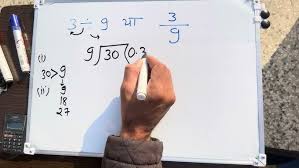 3 ÷ 9 या 3/9
(i)
30 > 9
9)30(0.3
(ii) 9
18
27